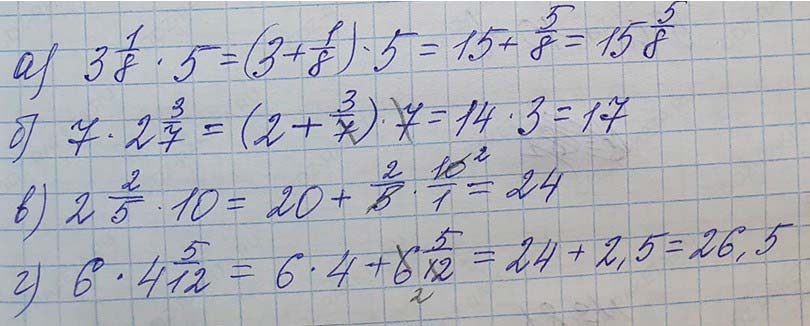 а) 3 1/8 · 5 = (3 + 1/8) · 5 = 15 + 5/8 = 15 5/8
б) 7 · 2 3/7 = (2 + 3/7) · 7 = 14 · 3 = 17
в) 2 2/5 · 10 = 20 + 2/5 · 10/1 2 = 24
г) 6 · 4 5/12 = 6 · 4 + 6 5/12 2 = 24 + 2,5 = 26,5